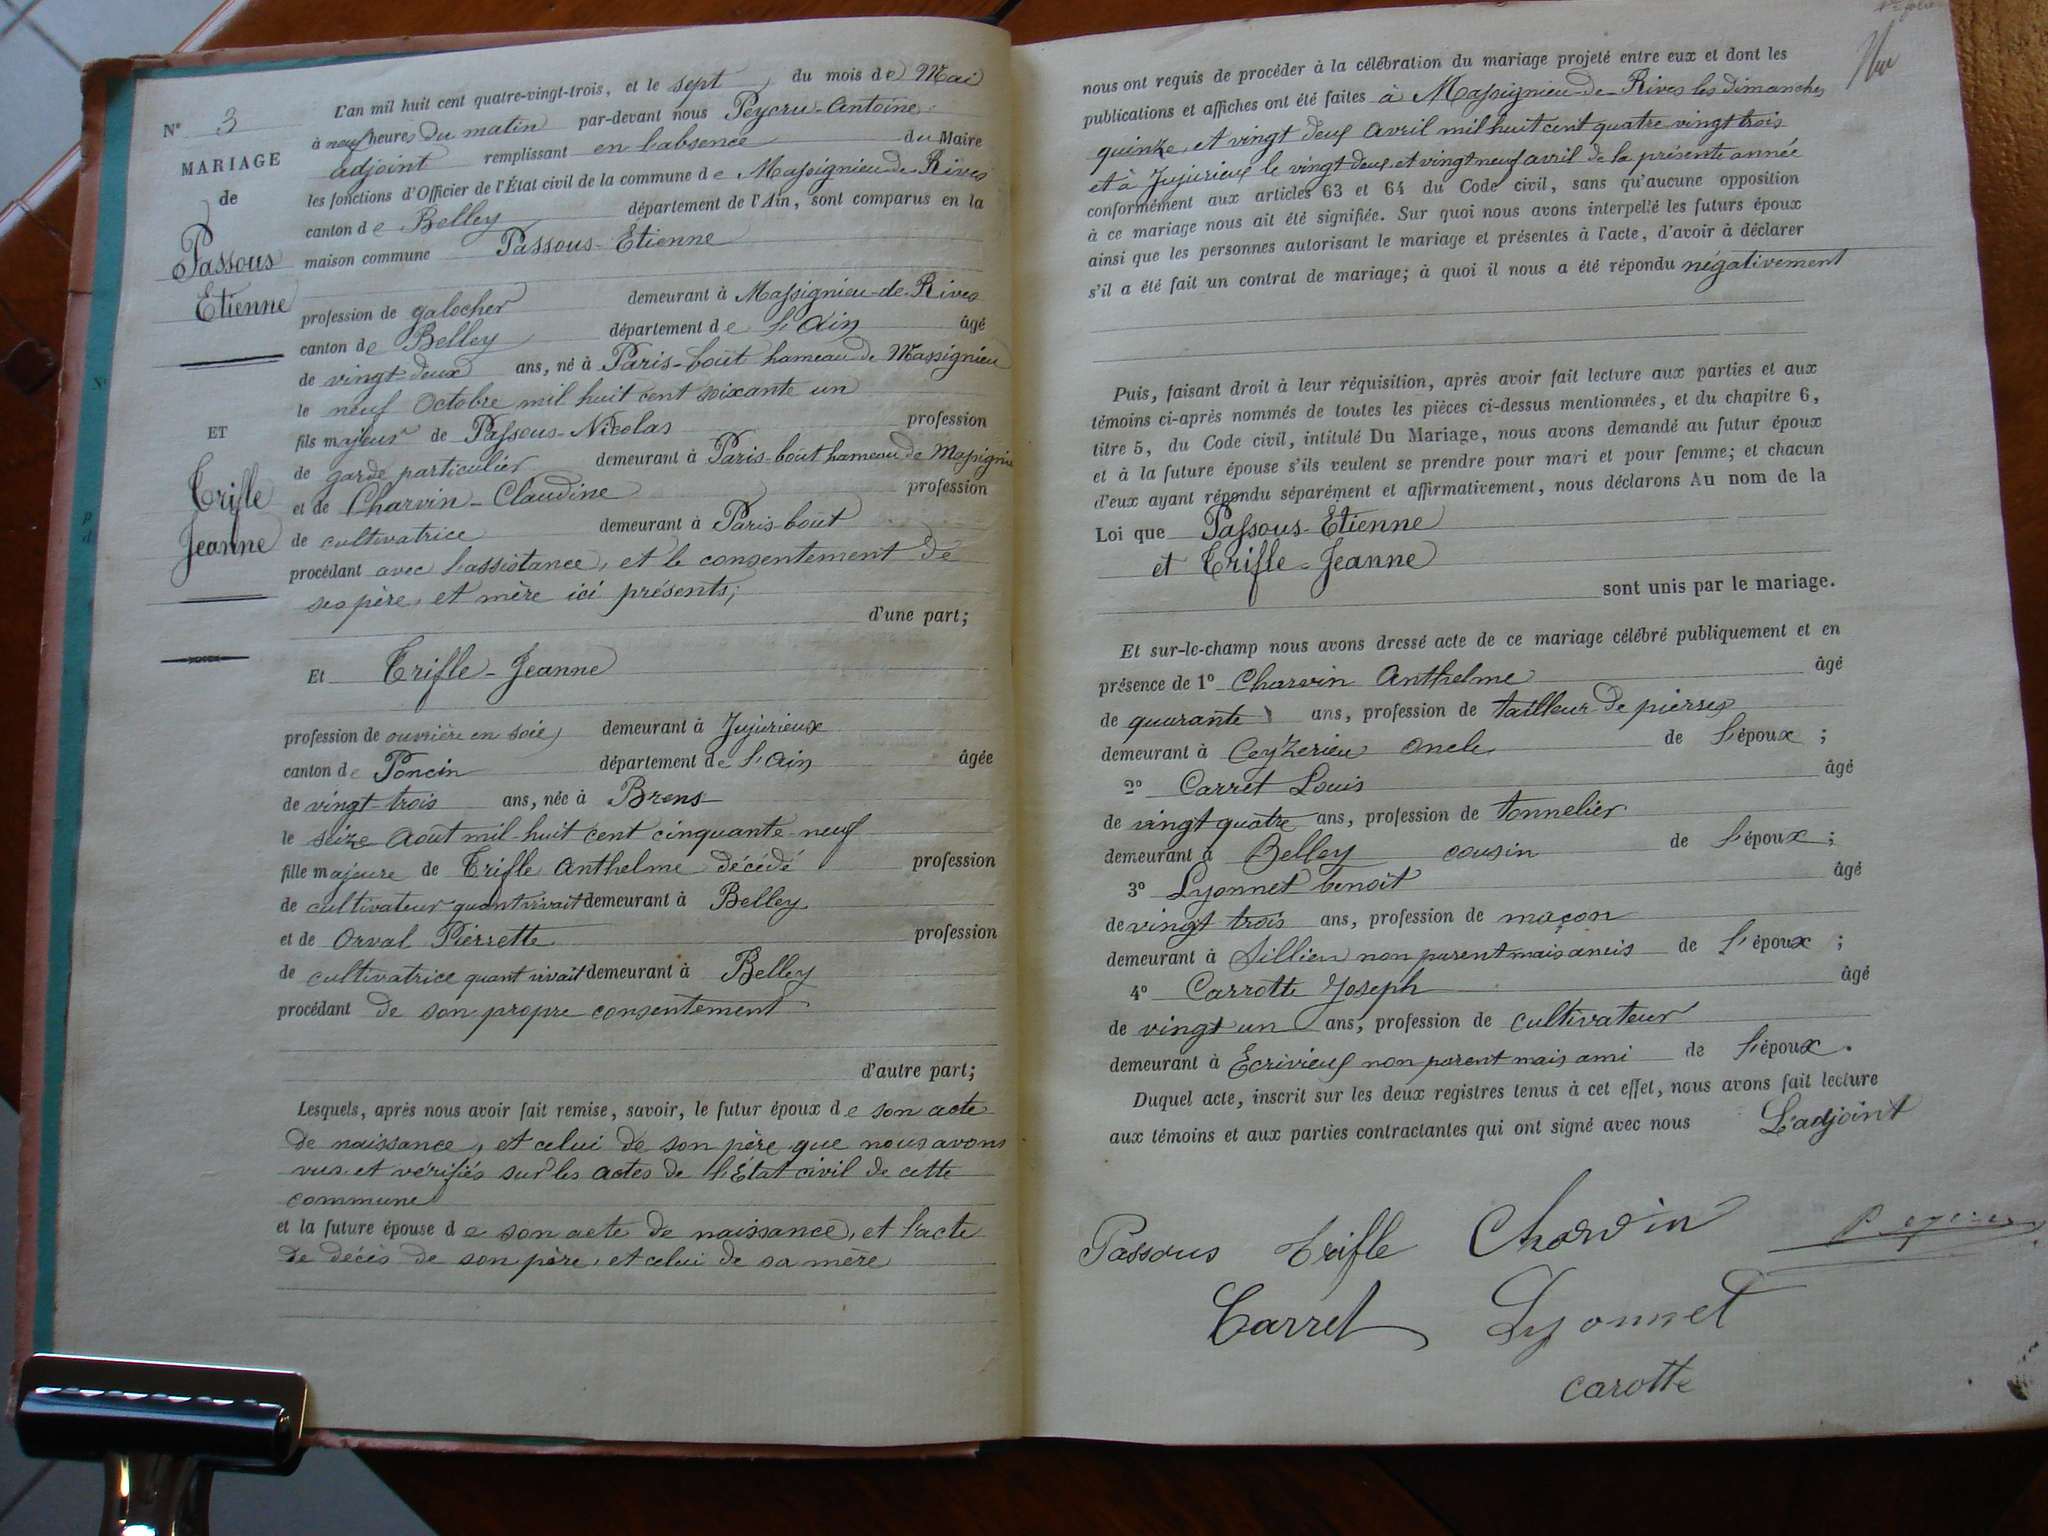 N° 3
MARIAGE
de
Passous
Etienne
ET
Trifle
Jeanne
L'an mil huit cent quatre-vingt-trois, et le sept du mois de Mai
à neuf heures du matin par-devant nous Peycru-Antoine
adjoint remplissant en l'absence du Maire
les fonctions d'Officier de l'État civil de la commune de Massignieu-de-Rives
canton de Belley département de l'Ain, sont comparus en la
maison commune Passous-Etienne
profession de galocher demeurant à Massignieu-de-Rives
canton de Belley département de l'Ain âgé
de vingt-deux ans, né à Paris-bout hameau de Massignieu
le neuf Octobre mil huit cent soixante un
fils majeur de Passous-Nicolas profession
de garde particulier demeurant à Paris-bout hameau de Massignieu
et de Charvin-Claudine profession
de cultivatrice demeurant à Paris-bout
procédant avec l'assistance, et le consentement de
ses père, et mère ici présents;
d'une part;
Et Trifle-Jeanne
profession de ouvrière en soie demeurant à Jujurieux
canton de Poncin département de l'Ain âgée
de vingt-trois ans, née à Brens
le seize Aout mil-huit cent cinquante-neuf
fille majeure de Trifle Anthelme décédé profession
de cultivateur quant vivait demeurant à Belley
et de Orval Pierrette profession
de cultivatrice quant vivait demeurant à Belley
procédant de son propre consentement
d'autre part;
Lesquels, après nous avoir fait remise, savoir, le futur époux de son acte
de naissance, et celui de son père que nous avons
vus et vérifiés sur les actes de l'État civil de cette
commune
et la future épouse de son acte de naissance, et l'acte
de décès de son père, et celui de sa mère
nous ont requis de procéder à la célébration du mariage projeté entre eux et dont les
publications et affiches ont été faites à Massignieu-de-Rives les dimanches
quinze, et vingt deux Avril mil huit cent quatre vingt trois
et à Jujurieux le vingt deux et vingt neuf avril de la présente année
conformément aux articles 63 et 64 du Code civil, sans qu'aucune opposition
à ce mariage nous ait été signifiée. Sur quoi nous avons interpellé les futurs époux
ainsi que les personnes autorisant le mariage et présentes à l'acte, d'avoir à déclarer
s'il a été fait un contrat de mariage; à quoi il nous a été répondu négativement
Puis, faisant droit à leur réquisition, après avoir fait lecture aux parties et aux
témoins ci-après nommés de toutes les pièces ci-dessus mentionnées, et du chapitre 6,
titre 5, du Code civil, intitulé Du Mariage, nous avons demandé au futur époux
et à la future épouse s'ils veulent se prendre pour mari et pour femme; et chacun
d'eux ayant répondu séparément et affirmativement, nous déclarons Au nom de la
Loi que Passous-Etienne
et Trifle-Jeanne
sont unis par le mariage.
Et sur-le-champ nous avons dressé acte de ce mariage célébré publiquement et en
présence de 1° Charvin Anthelme âgé
de quarante ans, profession de tailleur de pierres
demeurant à Ceyzerieu oncle de l'époux;
2° Carret Louis âgé
de vingt quatre ans, profession de tonnelier
demeurant à Belley cousin de l'époux;
3° Lyonnet benoit âgé
de vingt trois ans, profession de maçon
demeurant à Sillieu non parent mais amis de l'époux;
4° Carrotte Joseph âgé
de vingt un ans, profession de cultivateur
demeurant à Ecrivieux non parent mais ami de l'époux.
Duquel acte, inscrit sur les deux registres tenus à cet effet, nous avons fait lecture
aux témoins et aux parties contractantes qui ont signé avec nous L'adjoint
Passous Trifle Charvin Peycru
Carret Lyonnet
Carotte